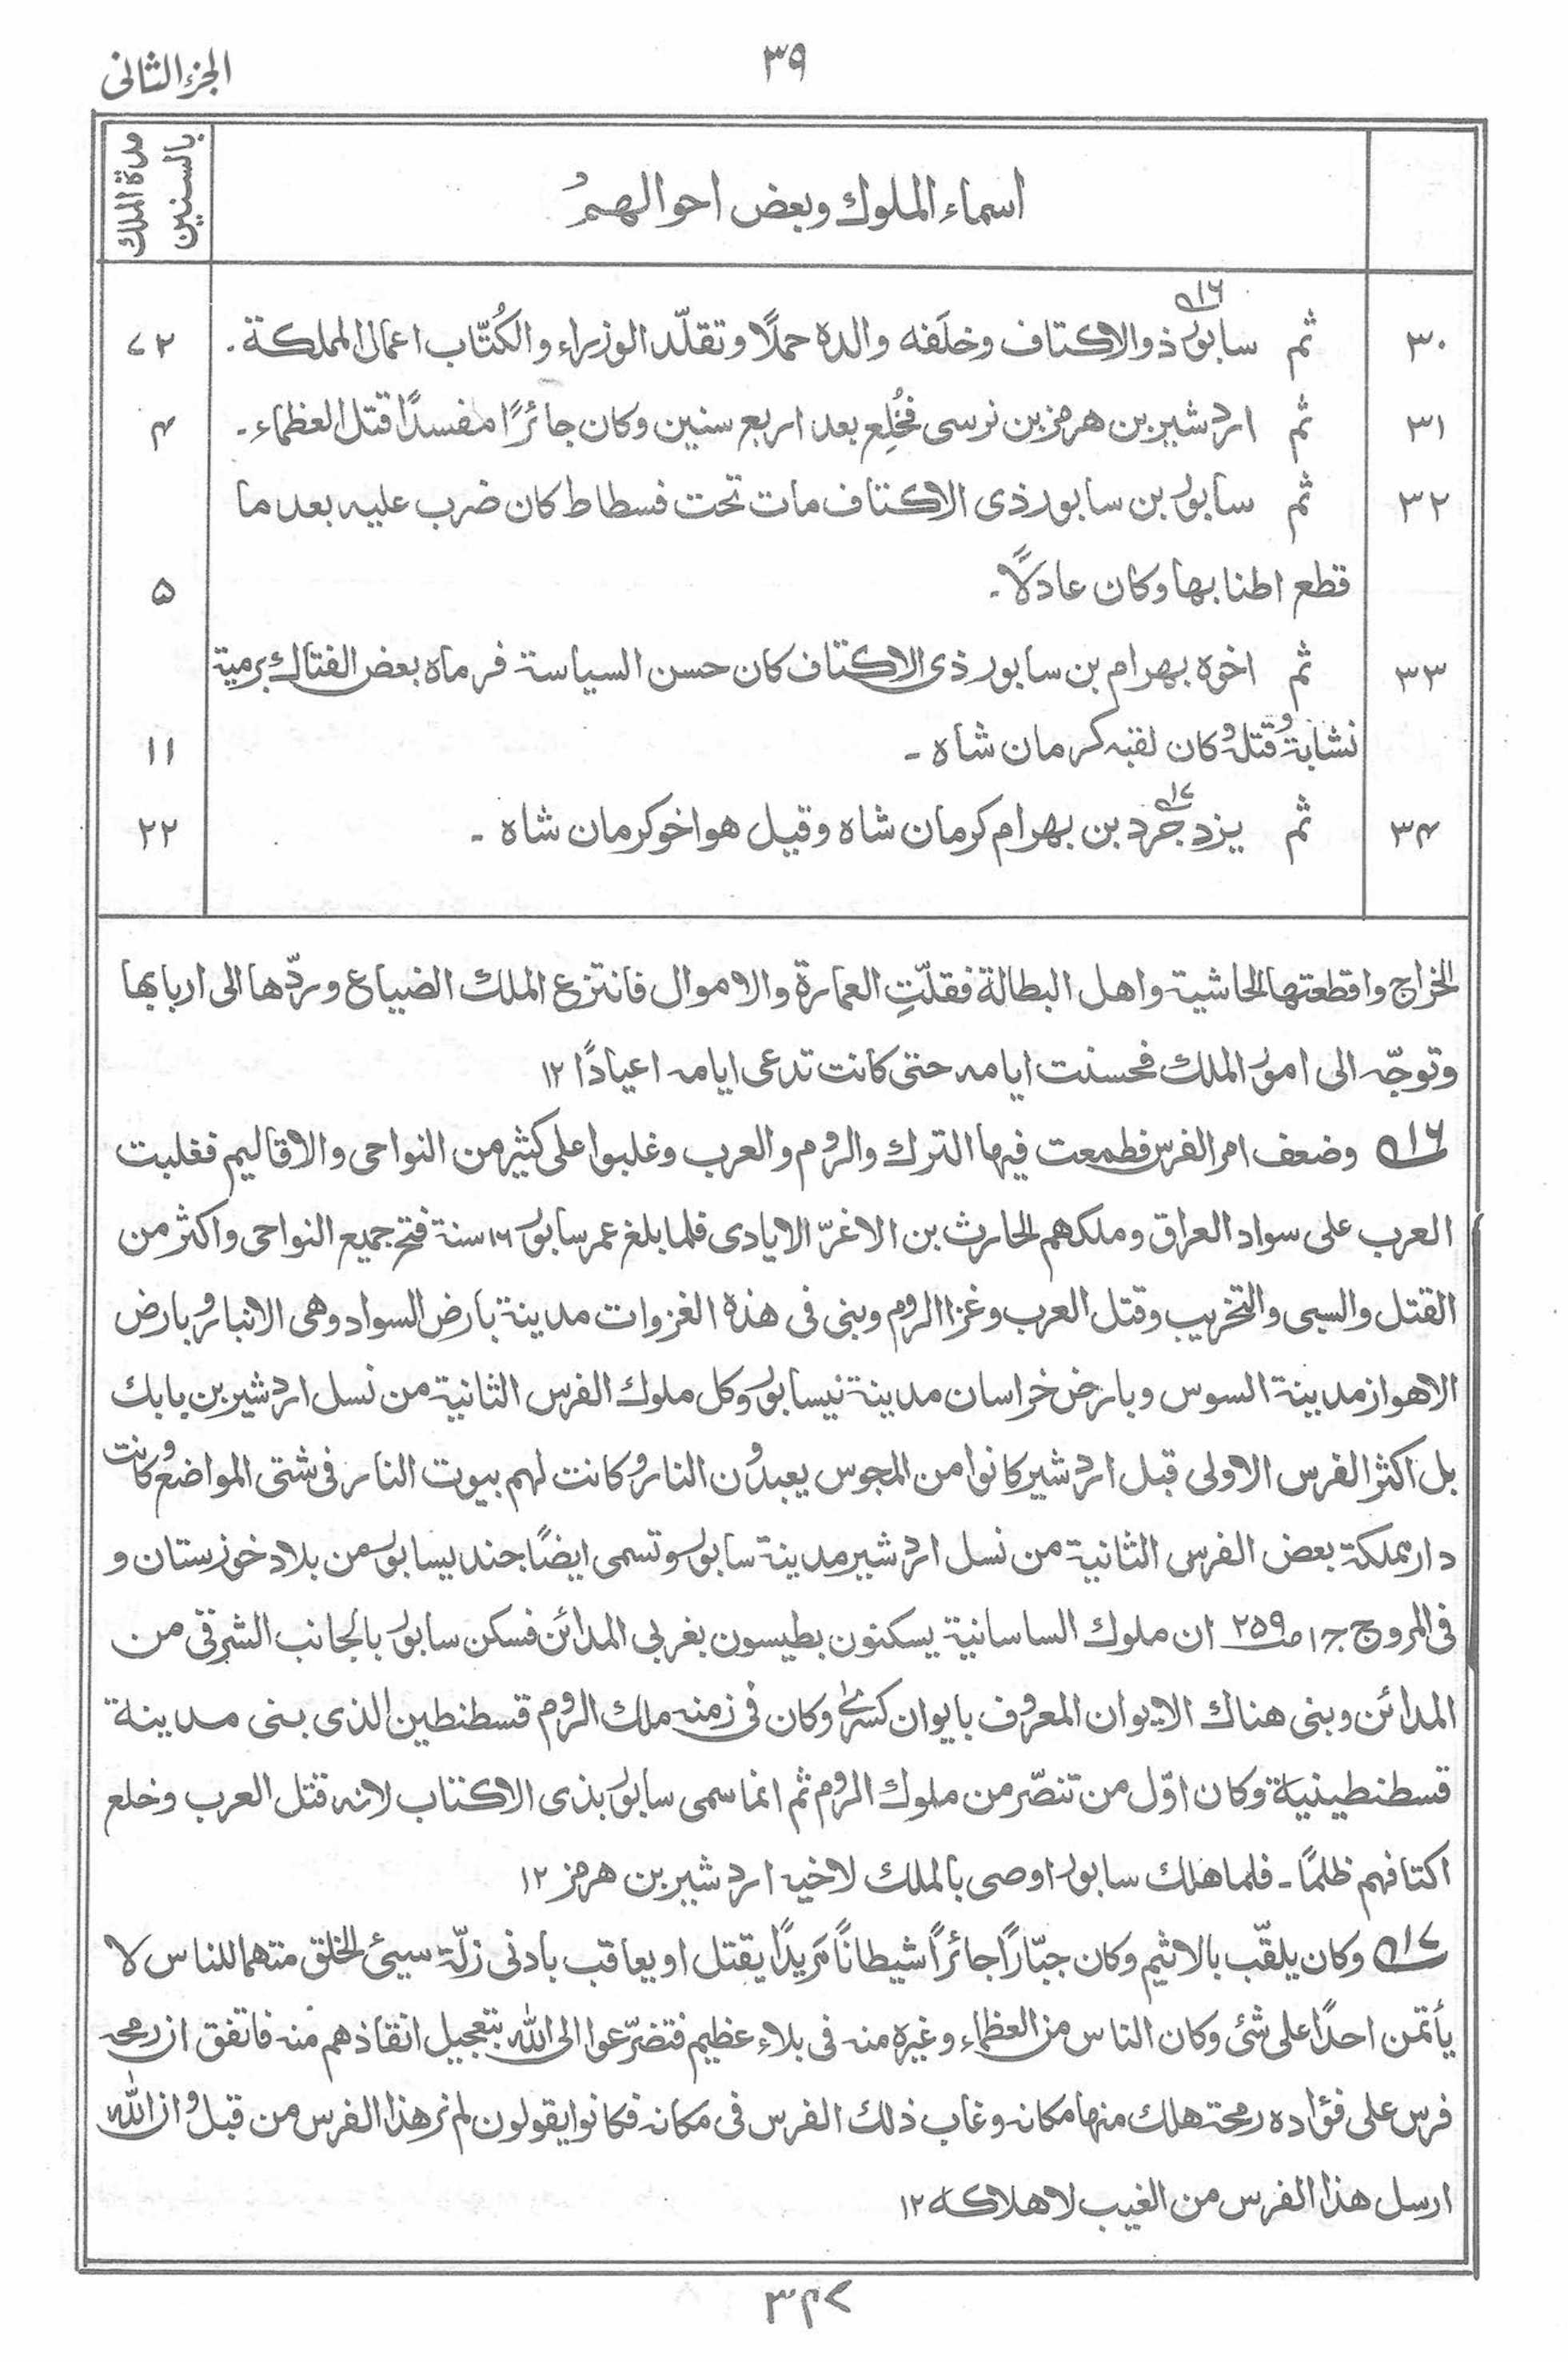 ٣٩
الجزء الثانى
اسماء الملوك وبعض احوالهم
مدة الملك بالسنين
٣٠ ثم سابور ذوالاكتاف وخلَفه والده حملًا وتقلّد الوزراء والكُتّاب اعمال المملكة. ٧٢
١٦
٣١ ثم اردشير بن هرمز بن نرسى فخُلِع بعد اربع سنين وكان جائرًا مفسدًا قتل العظماء۔ ۴
٣٢ ثم سابور بن سابور ذى الاكتاف مات تحت فسطاط كان ضرب عليه بعد ما
قطع اطنابها وكان عادلًا۔ ۵
٣٣ ثم اخوه بهرام بن سابور ذى الاكتاف كان حسن السياسة فرماه بعض الفتاك برمية
نشابة وقتله وكان لقبه كرمان شاه ۔ ١١
٣۴ ثم يزدجرد بن بهرام كرمان شاه وقيل هو اخو كرمان شاه ۔ ٢٢
١٧
الخراج واقطعتها الحاشية واهل البطالة فقلّتِ العمارة والاموال فانتزع الملك الضياع وردّها الى اربابها
وتوجّه الى امور الملك فحسنت ايامه حتى كانت تدعى ايامه اعيادًا ١٢
١٦ وضعف امر الفرس فطمعت فيها الترك والروم والعرب وغلبوا على كثير من النواحى والاقاليم فغلبت
العرب على سواد العراق وملكهم الحارث بن الاغرّ الايادى فلما بلغ عمر سابور ١٦ سنة فتح جميع النواحى واكثر من
القتل والسبى والتخريب وقتل العرب وغزا الروم وبنى فى هذه الغزوات مدينة بارض السواد وهى الانبار وبارض
الاهواز مدينة السوس وبارض خراسان مدينة نيسابور وكل ملوك الفرس الثانية من نسل اردشير بن بابك
بل اكثر الفرس الاولى قبل اردشير كانوا من المجوس يعبدون النار وكانت لهم بيوت النار فى شتى المواضع وكانت
دار مملكة بعض الفرس الثانية من نسل اردشير مدينة سابور وتسمى ايضًا جنديسابور من بلاد خوزستان و
فى المروج ج١ ص٢۵٩ ان ملوك الساسانية يسكنون بطيسون بغربى المدائن فسكن سابور بالجانب الشرقى من
المدائن وبنى هناك الايوان المعروف بايوان كسرىٰ وكان فى زمنه ملك الروم قسطنطين الذى بنى مدينة
قسطنطينية وكان اوّل من تنصّر من ملوك الروم ثم انما سمى سابور بذى الاكتاب لانه قتل العرب وخلع
اكتافهم ظلمًا۔ فلما هلك سابور اوصى بالملك لاخيه اردشير بن هرمز ١٢
١٧ وكان يلقّب بالاثيم وكان جبّارًا جائرًا شيطانًا مَريدًا يقتل او يعاقب بادنى زلّة سيئ الخلق متهما للناس لا
يأتمن احدًا على شئ وكان الناس من العظماء وغيره منه فى بلاء عظيم فتضرّعوا الى الله بتعجيل انقاذهم منه فاتفق ان رمحه
فرس على فؤاده رمحة هلك منها مكانه وغاب ذلك الفرس فى مكانه فكانوا يقولون لم نر هذا الفرس من قبل وان الله
ارسل هذا الفرس من الغيب لاهلاكه ١٢
٣۴٧